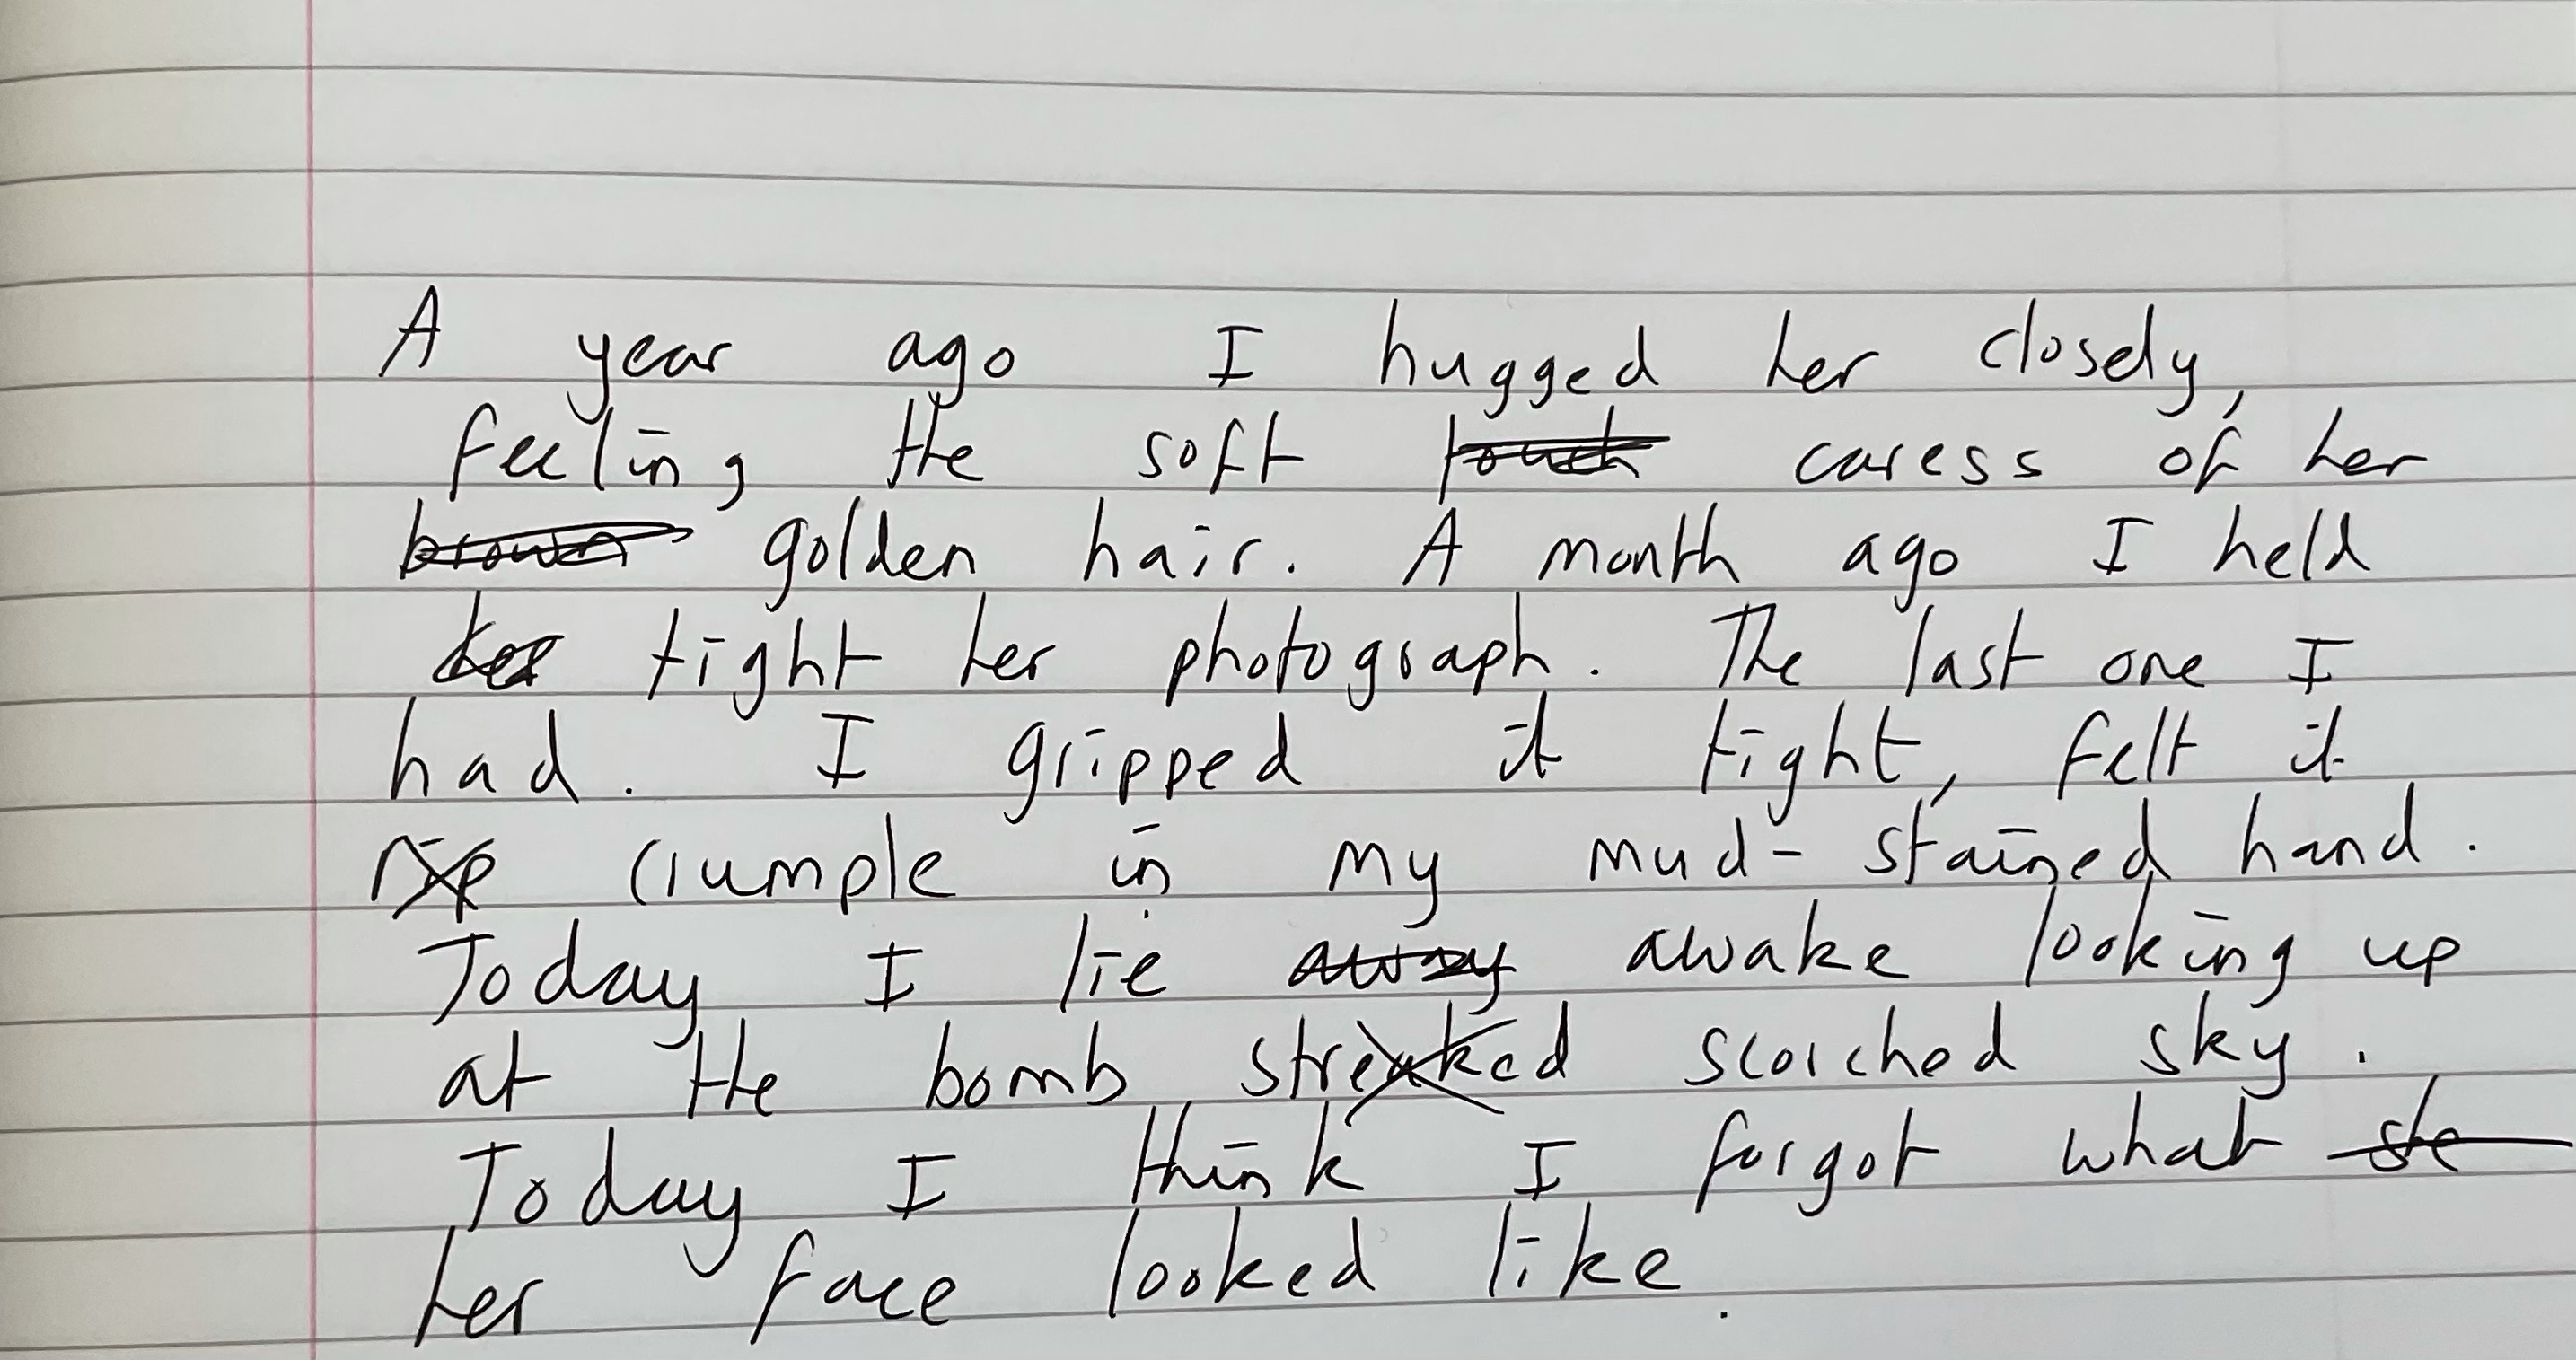 A year ago I hugged her closely,
feeling the soft touch caress of her
brown golden hair. A month ago I held
her tight her photograph. The last one I
had. I gripped it tight, felt it
rip crumple in my mud-stained hand.
Today I lie away awake looking up
at the bomb streaked scorched sky.
Today I think I forgot what she
her face looked like.